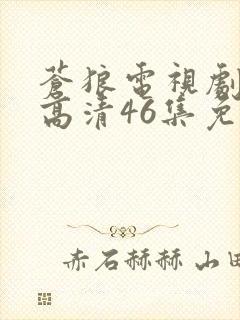 蒼狼電視劇
高清46集免
赤石赫赫山田